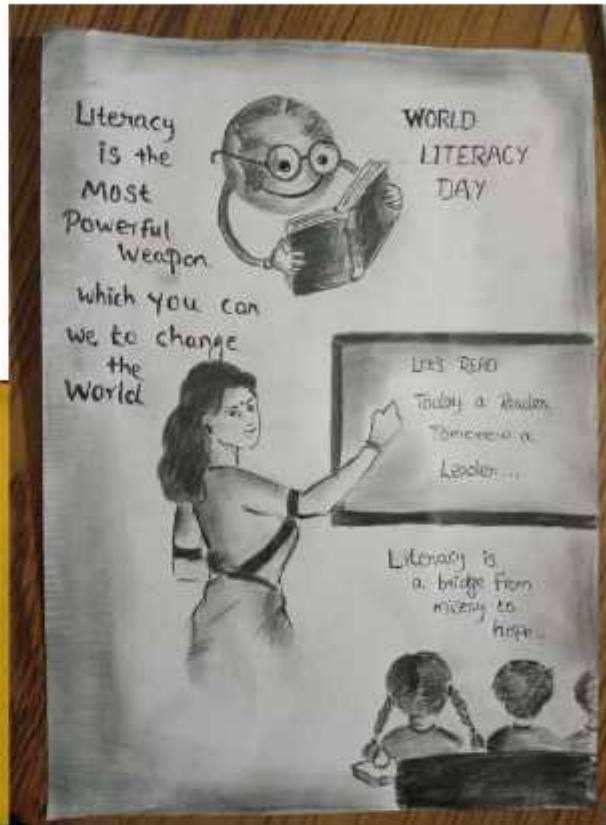 Literacy
is the
Most
Powerful
Weapon
which you can
we to change
the
World
WORLD
LITERACY
DAY
LET'S READ
Today a Reader
Tomorrow a
Leader...
Literacy is
a bridge from
misery to
hope..